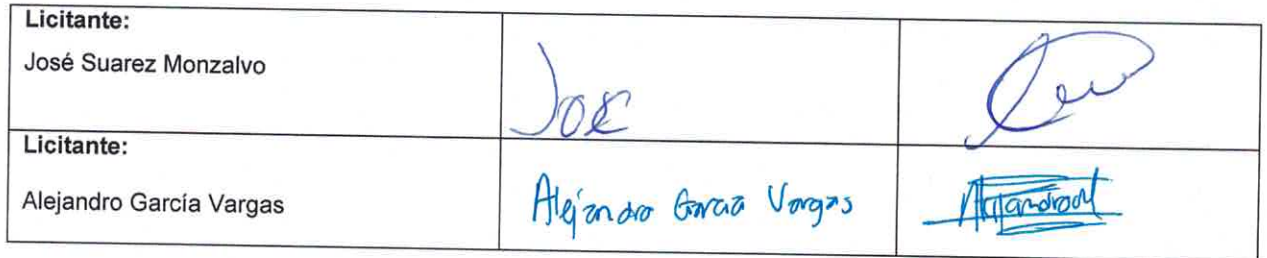 Licitante:
José Suarez Monzalvo
José
Licitante:
Alejandro García Vargas
Alejandro Garcia Vargas